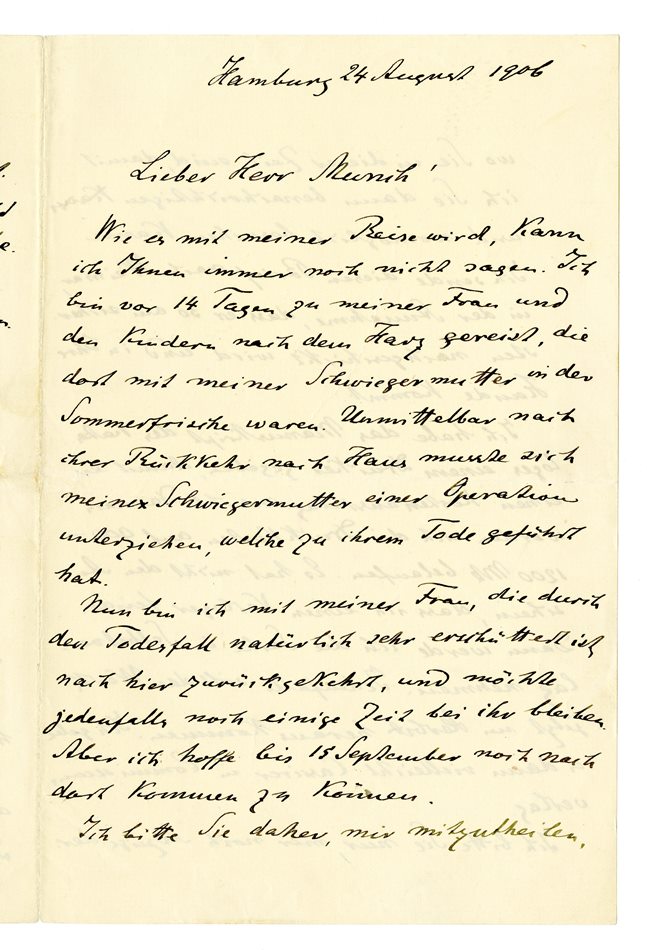 Hamburg 24 August 1906
Lieber Herr Munch!
Wie es mit meiner Reise wird, kann
ich Ihnen immer noch nicht sagen. Ich
bin vor 14 Tagen zu meiner Frau und
den Kindern nach dem Harz gereist, die
dort mit meiner Schwiegermutter in der
Sommerfrische waren. Unmittelbar nach
ihrer Rückkehr nach Haus musste sich
meine Schwiegermutter einer Operation
unterziehen, welche zu ihrem Tode geführt
hat.
Nun bin ich mit meiner Frau, die durch
den Todesfall natürlich sehr erschüttert ist,
nach hier zurückgekehrt, und möchte
jedenfalls noch einige Zeit bei ihr bleiben.
Aber ich hoffe bis 15 September noch nach
dort kommen zu können.
Ich bitte Sie daher, mir mitzutheilen,